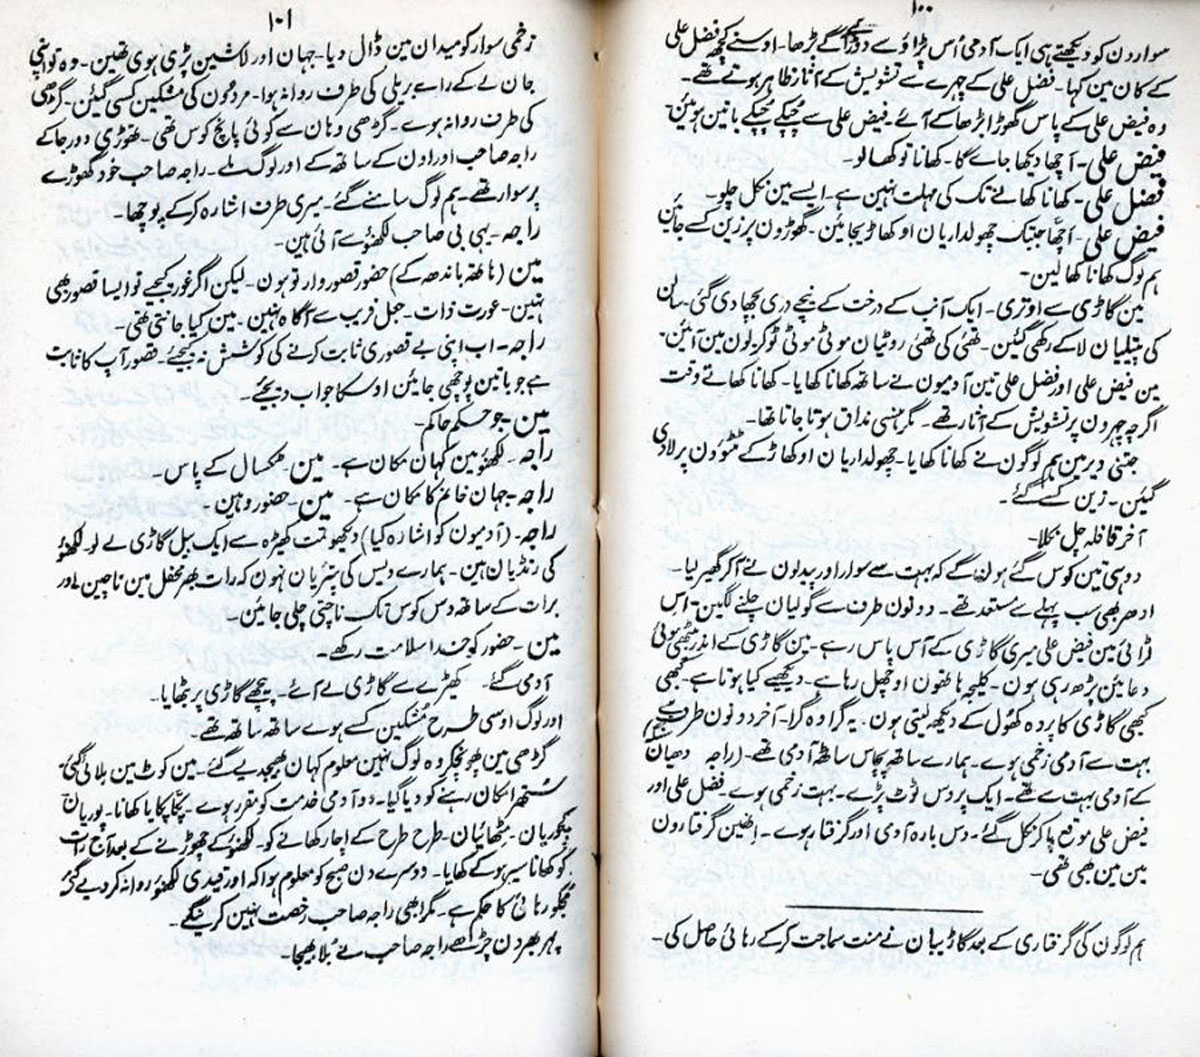 ۱۰۰
سوارون کو دیکھتے ہی ایک آدمی اُس پڑاؤ سے دوڑ کے آگے بڑھا۔ اوسنے کچھ فضل علی
کے کان مین کہا۔ فضل علی کے چہرے سے تشویش کے آثار ظاہر ہوتے تھے۔
وہ فیض علی کے پاس گھوڑا بڑھا کے آئے۔ فیض علی سے چُپکے چُپکے باتین ہوئین۔
فیض علی۔ اچھا دیکھا جائے گا۔ کھانا تو کھا لو۔
فضل علی۔ کھانا کھانے تک کی مہلت نہین ہے۔ ایسے مین نکل چلو۔
فیض علی۔ اچھا جبتک چھولداریان اوکھاڑیجائین۔ گھوڑون پر زین کسے جائین
ہم لوگ کھانا کھا لین۔
مین گاڑی سے اوتری۔ ایک آنب کے درخت کے نیچے دری بچھا دی گئی۔ سالن
کی پتیلیان لاکے رکھی گئین۔ تھئی کی تھئی روٹیان موٹی موٹی ٹوکریون مین آئین۔
مین فیض علی اور فضل علی تین آدمیون نے ساتھ کھانا کھایا۔ کھانا کھاتے وقت
اگرچہ چہرون پر تشویش کے آثار تھے۔ مگر ہنسی مذاق ہوتا جاتا تھا۔
جتنی دیر مین ہم لوگون نے کھانا کھایا۔ چھولداریان اوکھاڑ کے ٹٹوؤن پر لادی
گئین۔ زین کسے گئے۔
آخر قافلہ چل نکلا۔
دو ہی تین کوس گئے ہونگے کہ بہت سے سوار اور پیدلون نے آکر گھیر لیا۔
ادھر بھی سب پہلے سے مستعد تھے۔ دونون طرف سے گولیان چلنے لگین۔ اس
لڑائی مین فیض علی میری گاڑی کے آس پاس رہے۔ مین گاڑی کے اندر بیٹھی ہوئی
دعائین پڑھ رہی ہون۔ کلیجہ ہاتھون اوچھل رہا ہے۔ دیکھیے کیا ہوتا ہے۔ کبھی
کبھی گاڑی کا پردہ کھول کے دیکھ لیتی ہون۔ یہ گرا وہ گرا۔ آخر دونون طرف سے
بہت سے آدمی زخمی ہوے۔ ہمارے ساتھ پچاس ساٹھ آدمی تھے۔ (راجہ دھیان سنگھ)
کے آدمی بہت سے تھے۔ ایک پر دس ٹوٹ پڑے۔ بہت زخمی ہوے۔ فضل علی اور
فیض علی موقع پاکر نکل گئے۔ دس بارہ آدمی اور گرفتار ہوے۔ انھین گرفتارون
مین مین بھی تھی۔
ہم لوگون کی گرفتاری کے بعد گاڑیبان نے منت سماجت کرکے رہائی حاصل کی۔
۱۰۱
زخمی سوار کو میدان مین ڈال دیا۔ جہان اور لاشین پڑی ہوی تھین۔ وہ تو اپنی
جان لے کے رائے بریلی کی طرف روانہ ہوا۔ مردمون کی مشکین کسی گئین۔ گڑھی
کی طرف روانہ ہوے۔ گڑھی وہان سے کوئی پانچ کوس تھی۔ تھوڑی دور جاکے
راجہ صاحب اور اون کے ساتھ کے اور لوگ ملے۔ راجہ صاحب خود گھوڑے
پر سوار تھے۔ ہم لوگ سامنے گئے۔ میری طرف اشارہ کرکے پوچھا۔
راجہ۔ یہی بی صاحب لکھنؤ سے آئی ہین۔
مین (ہاتھ باندھ کے) حضور قصوروار تو ہون۔ لیکن اگر غور کیجیے تو ایسا قصور بھی
نہین۔ عورت ذات۔ جعل فریب سے آگاہ نہین۔ مین کیا جانتی تھی۔
راجہ۔ اب اپنی بے قصوری ثابت کرنے کی کوشش نہ کیجئے۔ قصور آپ کا ثابت
ہے جو باتین پوچھی جائین اوسکا جواب دیجئے۔
مین۔ جو حکم حاکم۔
راجہ۔ لکھنؤ مین کہان مکان ہے۔ مین۔ ٹکسال کے پاس۔
راجہ۔ جہان خانم کا مکان ہے۔ مین۔ حضور وہین۔
راجہ۔ (آدمیون کو اشارہ کیا) دیکھو کھیڑہ سے ایک بیل گاڑی لے لو۔ لکھنؤ
کی رنڈیان ہین۔ ہمارے دیس کی پتریان نہون کہ رات بھر محفل مین ناچین اور
برات کے ساتھ دس کوس تک ناچتی چلی جائین۔
مین۔ حضور کو خدا سلامت رکھے۔
آدمی گئے۔ کھیڑے سے گاڑی لے آئے۔ پیچھے گاڑی پر بٹھایا۔
اور لوگ اوسی طرح مُشکین کسے ہوے ساتھ ساتھ تھے۔
گڑھی مین پہونچکر وہ لوگ نہین معلوم کہان بھیجدیے گئے۔ مین کوٹ مین بلائی گئی۔
ستھرا مکان رہنے کو دیا گیا۔ دو آدمی خدمت کو مقرر ہوے۔ پکّا پکایا کھانا۔ پوریان
کچوریان۔ مٹھائیان۔ طرح طرح کے اچار کھانے کو۔ لکھنؤ کے چھوڑنے کے بعد آج رات
کو کھانا سیر ہوکے کھایا۔ دوسرے دن صبح کو معلوم ہوا کہ اور قیدی لکھنؤ روانہ کردیے گئے
مجکو رہائی کا حکم ہے۔ مگر ابھی راجہ صاحب رخصت نہین کرینگے۔
پہر بھر دن چڑھے راجہ صاحب نے بلا بھیجا۔